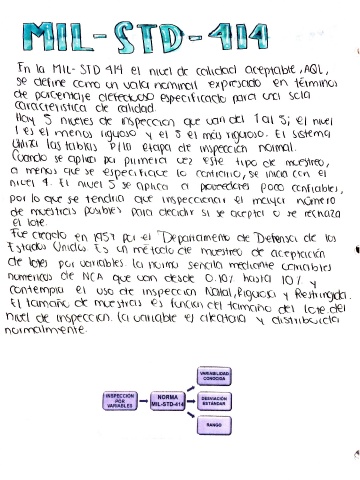 MIL-STD-414
En la MIL-STD 414 el nivel de calidad aceptable, AQL,
se define como un valor nominal expresado en términos
de porcentaje defectuoso especificado para una sola
característica de calidad.
Hay 5 niveles de inspección que van del 1 al 5; el nivel
1 es el menos riguoso y el 5 el más riguroso. El sistema
utiliza las tablas p/la etapa de inspección normal.
Cuando se aplica por primera vez este tipo de muestreo,
a menos que se especifique lo contrario, se inicia con el
nivel 4. El nivel 5 se aplica a proveedores poco confiables,
por lo que se tendría que inspeccionar el mayor número
de muestras posibles para decidir si se acepta o se rechaza
el lote.
Fue creado en 1957 por el "Departamento de Defensa de los
Estados Unidos Es un método de muestreo de aceptación
de lotes por variables la norma sencilla mediante variables
numericas de NCA que van desde 0.10% hasta 10% y
contempla el uso de inspección Natal, Rigurosa y Restringida.
El tamaño de muestras es función del tamaño del lote del
nivel de inspección. la variable es aleatoria y distribuida
normalmente.
INSPECCIÓN POR VARIABLES
NORMA MIL-STD-414
VARIABILIDAD CONOCIDA
DESVIACIÓN ESTÁNDAR
RANGO